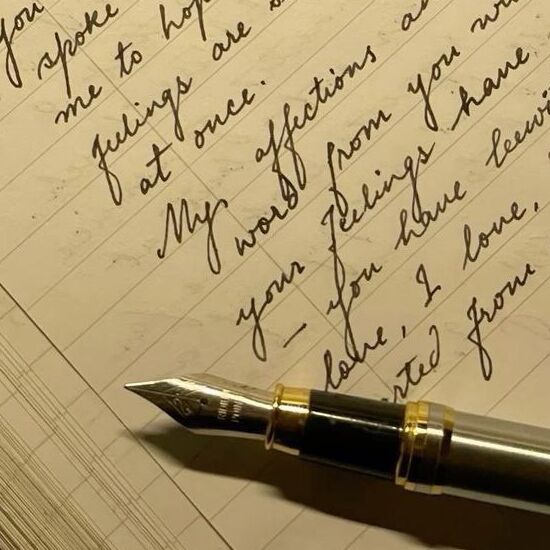 you
spoke
me to hop
feelings are s
at once.
My affections an
word from you wi
your feelings have
– you have bewi
love, I love,
rted from